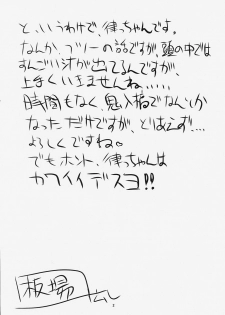 と、いうわけで、律っちゃんです。
なんか、ブリーの話ですが、頭の中では
すんごい汁が出てるんですが、
上手くいきませんね、、、、、
時間もなく、鬼入稿でなんしか
なった だけですが、とりあえず!....
よろしくですね。
でもホント、律っちゃんは
カワイイデスヨ!!
板場